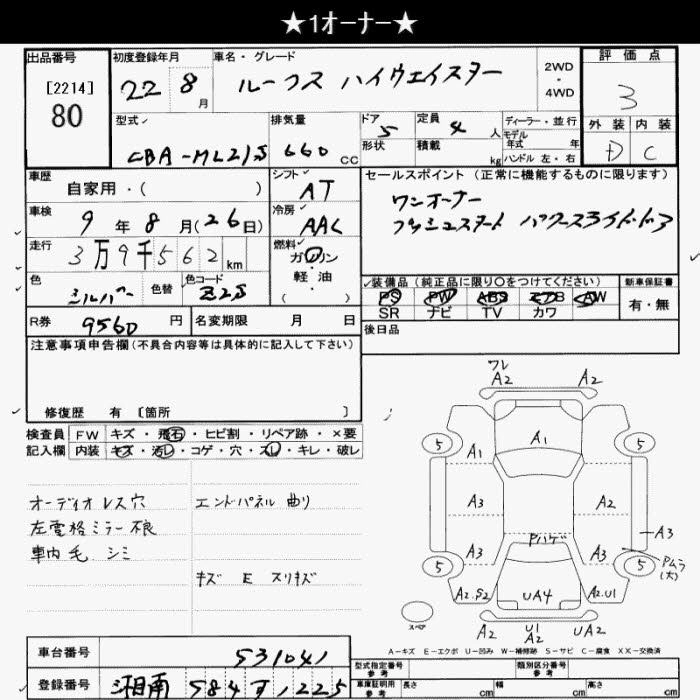 ★1オーナー★
出品番号 初度登録年月 車名・グレード 評価点
[2214]
80
22 8月 ルークス ハイウェイスター 2WD・4WD 3
型式 排気量 ドア 定員 ディーラー・並行 外装 内装
CBA-ML21S 660cc 5 4人 モデル年式 年 D C
形状 積載 kg ハンドル 左・右
車歴 自家用・( ) シフト AT セールスポイント(正常に機能するものに限ります)
ワンオーナー
プッシュスタート パワースライドドア
車検 9年8月(26日) 冷房 AAC
走行 3万9千562km 燃料 ガソリン
軽油
( )
色 シルバー 色替 色コード
装備品(純正品に限り○をつけてください) 新車保証書
PS PW ABS エアB AW 有・無
SR ナビ TV カワ
R券 9560円 名変期限 月 日
後日品
注意事項申告欄(不具合内容等は具体的に記入して下さい)
修復歴 有 [箇所 ]
検査員 FW キズ・飛石・ヒビ割・リペア跡・×要
記入欄 内装 キズ・汚レ・コゲ・穴・スレ・キレ・破レ
オーディオレス穴 エンドパネル曲り
左電格ミラー不良
車内毛 シミ
キズ E スリキズ
ワレ
A2 A2
5 A1 A1 5
A3 A2
Pハゲ A3
5 A3 A3 5 Pムラ
(大)
A2.S2 UA4 A2.U1
スペア A2 U1 UA2
A2
A-キズ E-エクボ U-凹み W-補修跡 S-サビ C-腐食 XX-交換済
車台番号 531041
型式指定番号 参考 類別区分番号 参考
登録番号 湘南 584 す 1225
車庫証明用 参考 長さ cm 幅 cm 高さ cm